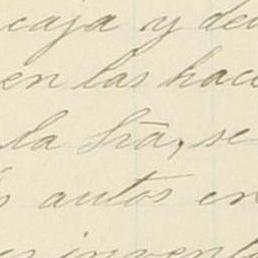 caja y de
en las hace
la Sra, se
autos en